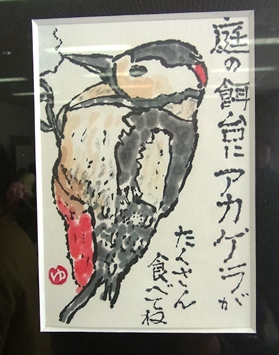 庭の餌台に
アカゲラが
たくさん
食べてね
ゆ